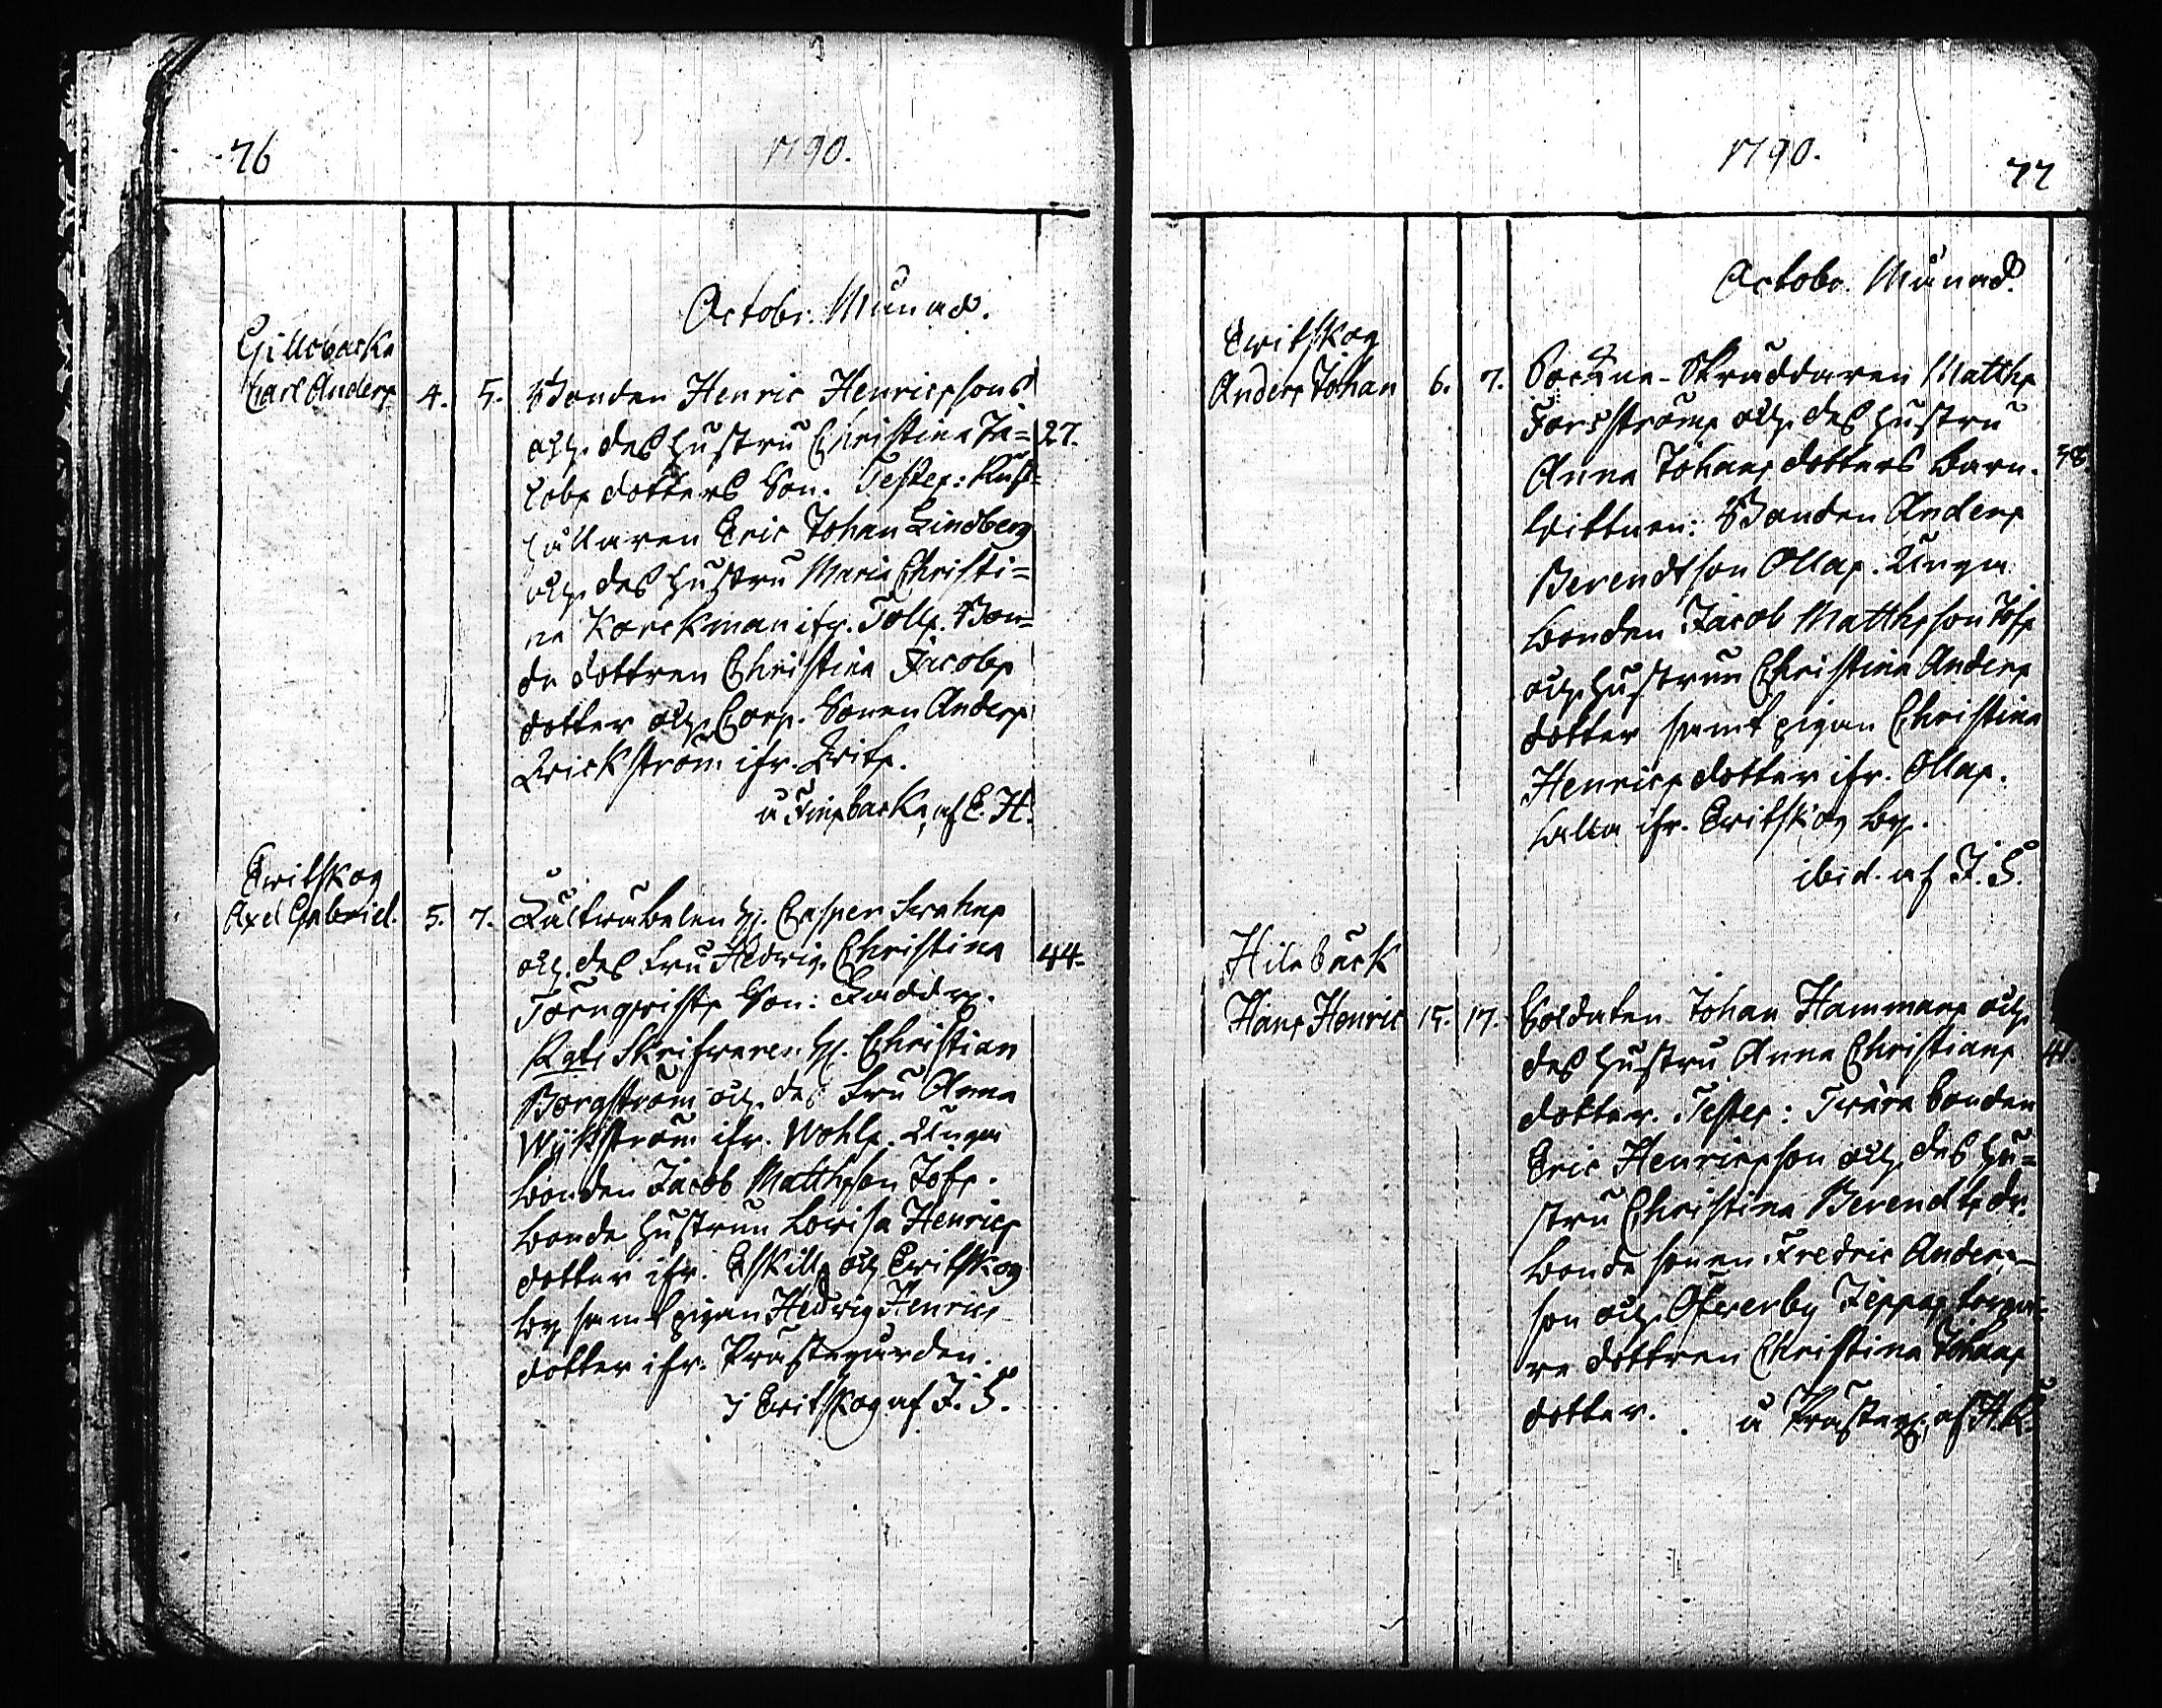 76
1790.
Octobr. Månad.
Gillobacka
Carl Anders
4. 5. Bonden Henric Henricssons
och des hustru Christina Ja= 27.
cobs dotters Son. Testes: Rust=
hållaren Eric Johan Lindberg
och des hustru Maria Christi=
na Korckman ifr. Tolls. Bon=
de dottren Christina Jacobs
dotter och Corp. Sonen Anders
Qrickström ifr. Brits.
å Finsbacka, af E. H.
Qvitskog
Axel Gabriel.
5. 7. Fältwäbelen H. Casper
och des Fru Hedwig Christina 44.
Törnqwists Son: Faddr.
Rgts Skrifwaren H. Christian
Borgström och des Fru Anna
Wijkström ifr. Wohls. Unga
bonden Jacob Mattsson Tofs.
bonde hustrun Lovisa Henrics
dotter ifr. Eskills och Qvitskog
by samt pigan Hedwig Henrics
dotter ifr. Prästegården.
i Qvitskog af J. S.
1790.
77
Octobr. Månad.
Qvitskog
Anders Johan
6. 7. Sockne-Skräddaren Matths
Forsströms och des hustru
Anna Johans dotters barn. 38.
Wittnen: Bonden Anders
Berendtson Ollas. Unga
bonden Jacob Matthsson Tofs
och hustrun Christina Anders
dotter samt pigan Christina
Henrics dotter ifr. Ollas.
alla ifr. Qvitskog by.
ibid. af J. S.
Hilabäck
Hans Henric
15. 17. Soldaten Johan Hammars och
des hustru Anna Christians 41.
dotter. Testes: Twära bonden
Eric Henricsson och des hu=
stru Christina Berendts dr.
bonde sonen Fredric Anders=
son och Öfwerby Jeppas torpa=
re dottren Christina Johans
dotter. å Prästeg. af H. K.